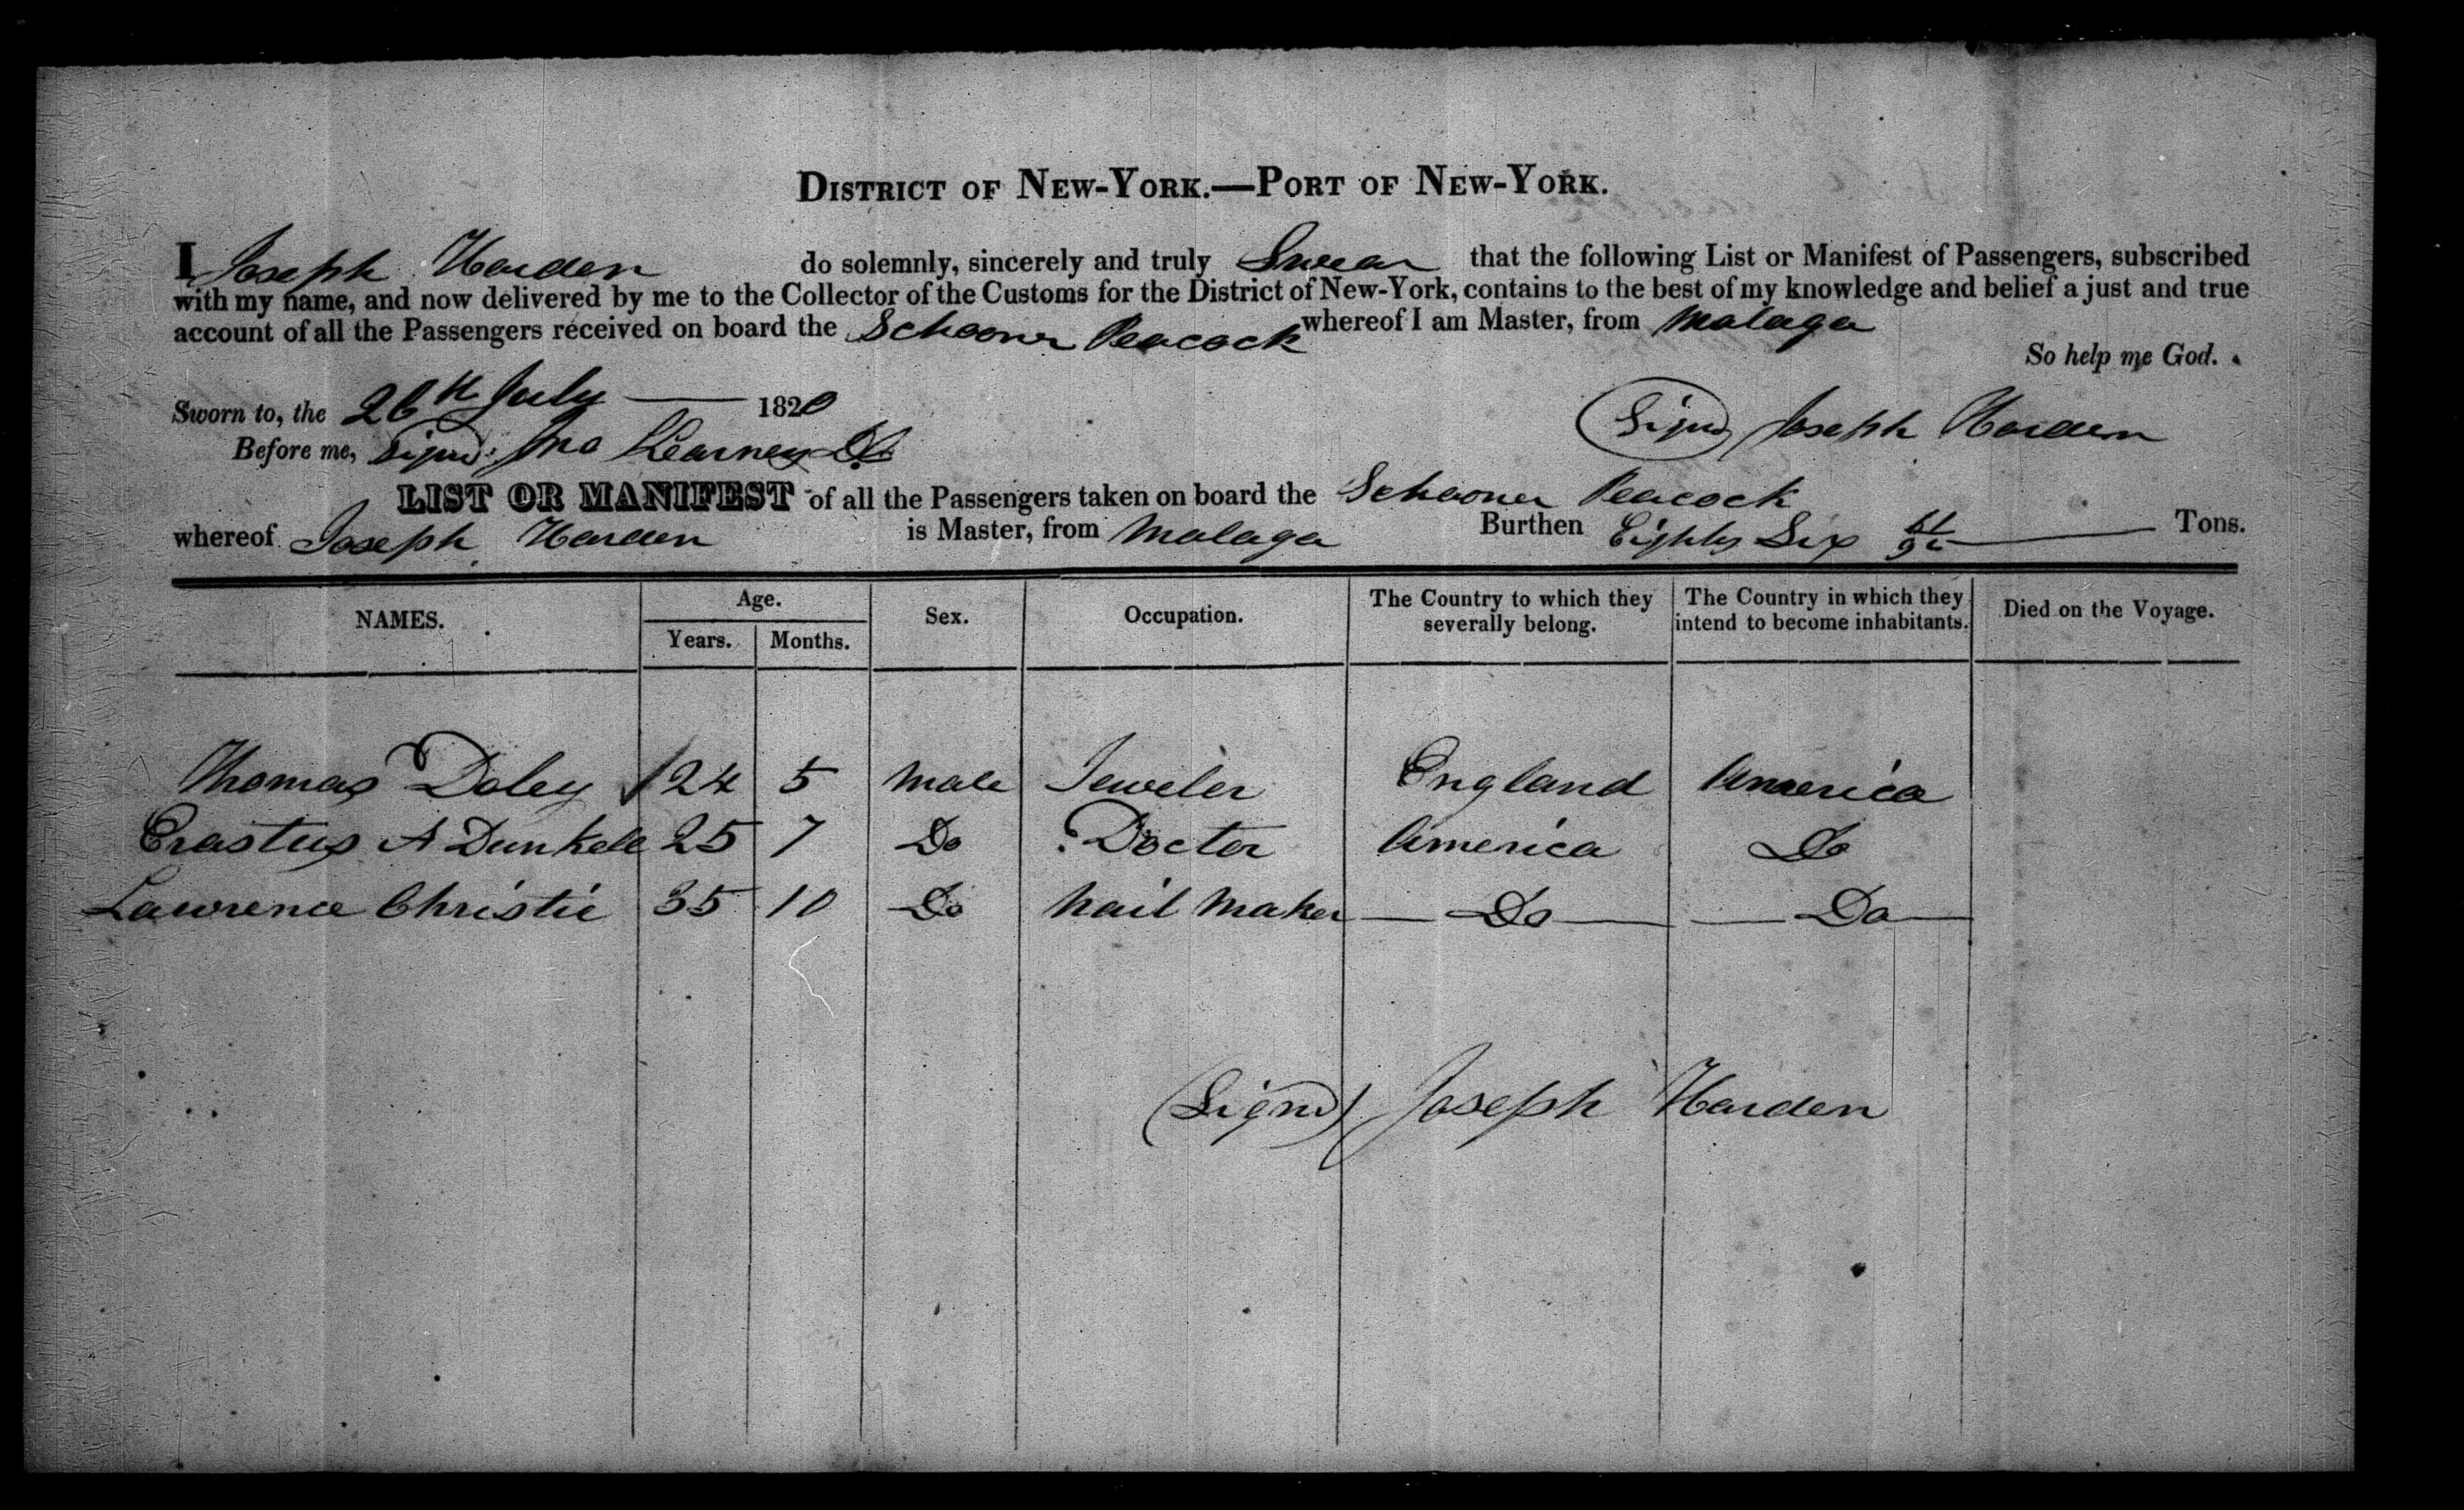 DISTRICT OF NEW-YORK.—PORT OF NEW-YORK.
I Joseph Harden do solemnly, sincerely and truly Swear that the following List or Manifest of Passengers, subscribed
with my name, and now delivered by me to the Collector of the Customs for the District of New-York, contains to the best of my knowledge and belief a just and true
account of all the Passengers received on board the Schooner Peacock whereof I am Master, from Malaga
So help me God.
Sworn to, the 26th July 1820
(Signd) Joseph Harden
Before me, Signd. Jno Kearney
LIST OR MANIFEST of all the Passengers taken on board the Schooner Peacock
whereof Joseph Harden is Master, from Malaga Burthen Eighty Six Tons.
NAMES. Age. Years. Months. Sex. Occupation. The Country to which they severally belong. The Country in which they intend to become inhabitants. Died on the Voyage.
Thomas Doley 24 5 Male Jeweler England America
Erastus A Dunkele 25 7 Do Doctor America Do
Lawrence Christie 35 10 Do Nail Maker Do Do
(Signd) Joseph Harden